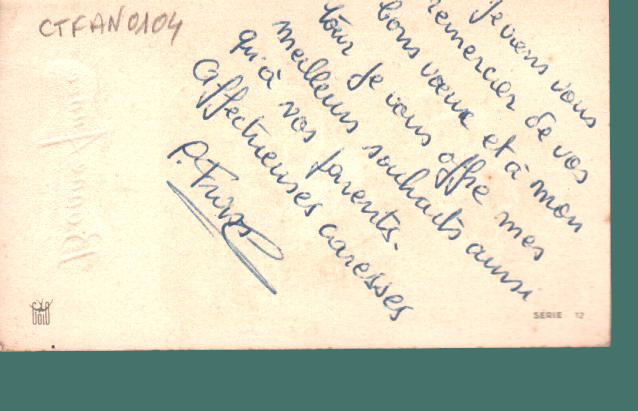 CTFAN0104
Je viens vous
remercier de vos
bons vœux et à mon
tour je vous offre mes
meilleurs souhaits aussi
qu'à vos parents.
Affectueuses caresses
Bonne Année
SÉRIE 12